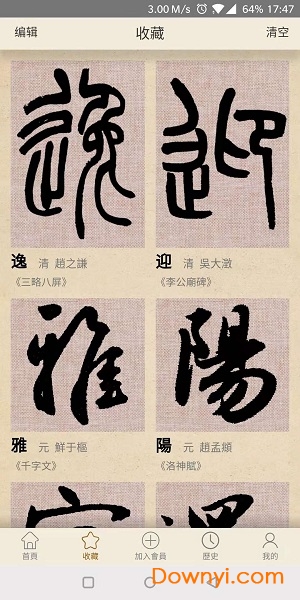 3.00 M/s 64% 17:47
编辑 收藏 清空
逸 迎
逸 清 趙之謙
《三略八屏》
迎 清 吳大澂
《李公廟碑》
雅 陽
雅 元 鮮于樞
《千字文》
陽 元 趙孟頫
《洛神賦》
首頁 收藏 加入會員 歷史 我的
Downyi.com